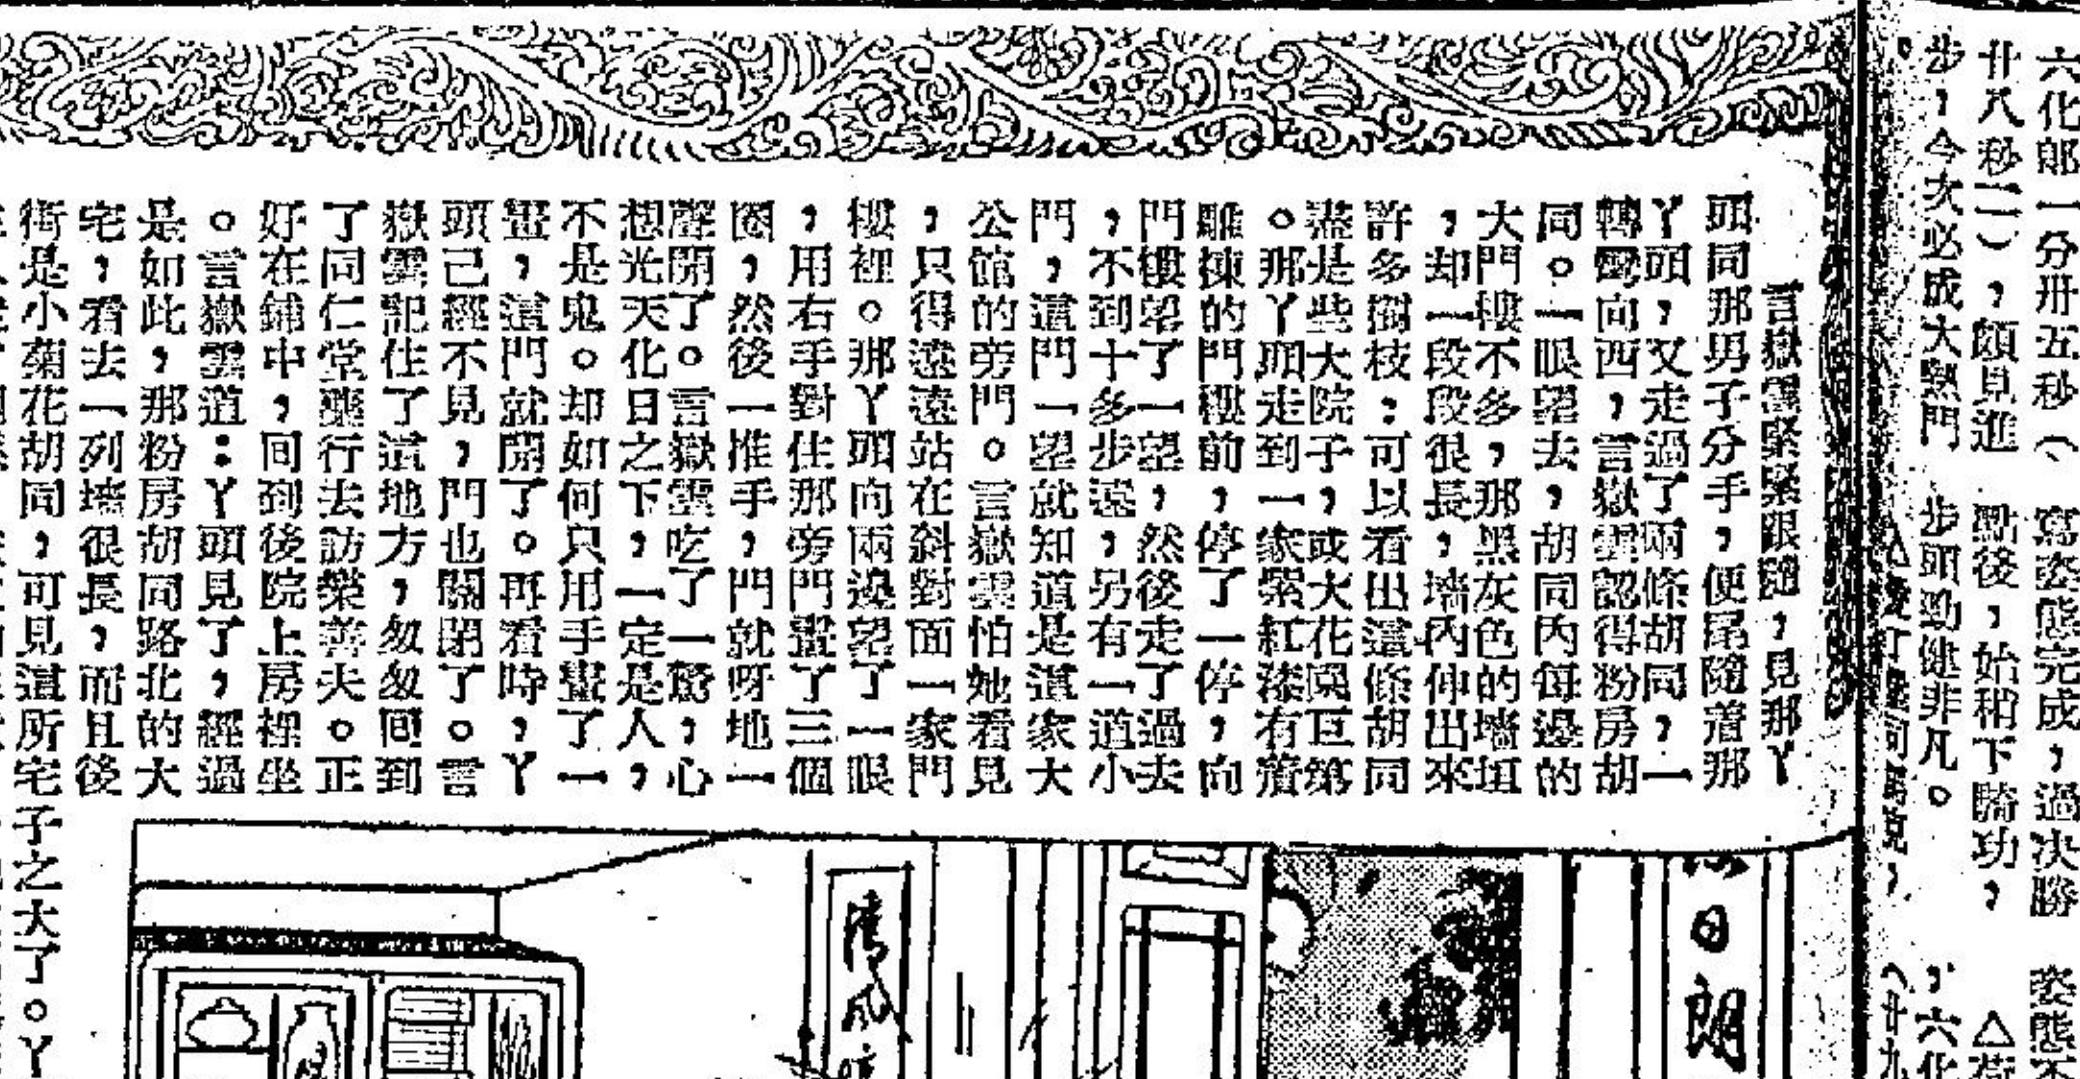 六化郎一分卅五秒（
廿八秒二），頗見進
步，今次必成大熱門
。
寫姿態完成，過決勝
點後，始稍下騎功，
步頭勁健非凡。
姿態不
△
，六化
（廿九
言嶽雲緊緊跟隨，見那丫
頭同那男子分手，便尾隨着那
丫頭，又走過了兩條胡同，一
轉彎向西，言嶽雲認得粉房胡
同。一眼望去，胡同內每邊的
大門樓不多，那黑灰色的墻垣
，却一段段很長，墻內伸出來
許多樹枝：可以看出這條胡同
盡是些大院子，或大花園巨第
。那丫頭走到一家紫紅漆有着
雕揀的門樓前，停了一停，向
門樓望了一望，然後走了過去
，不到十多步遠，另有一道小
門，這門一望就知道是這家大
公館的旁門。言嶽雲怕她看見
，只得遠遠站在斜對面一家門
樓裡。那丫頭向兩邊望了一眼
，用右手對住那旁門畫了三個
圈，然後一推手，門就呀地一
聲開了。言嶽雲吃了一驚，心
想光天化日之下，一定是人，
不是鬼。却如何只用手畫了一
畫，這門就開了。再看時，丫
頭已經不見，門也關閉了。言
嶽雲記住了這地方，匆匆囘到
了同仁堂藥行去訪樂善夫。正
好在鋪中，囘到後院上房裡坐
。言嶽雲道：丫頭見了，經過
是如此，那粉房胡同路北的大
宅，看去一列墻很長，而且後
街是小菊花胡同，可見這所宅
子之大了。丫
日朗
清風